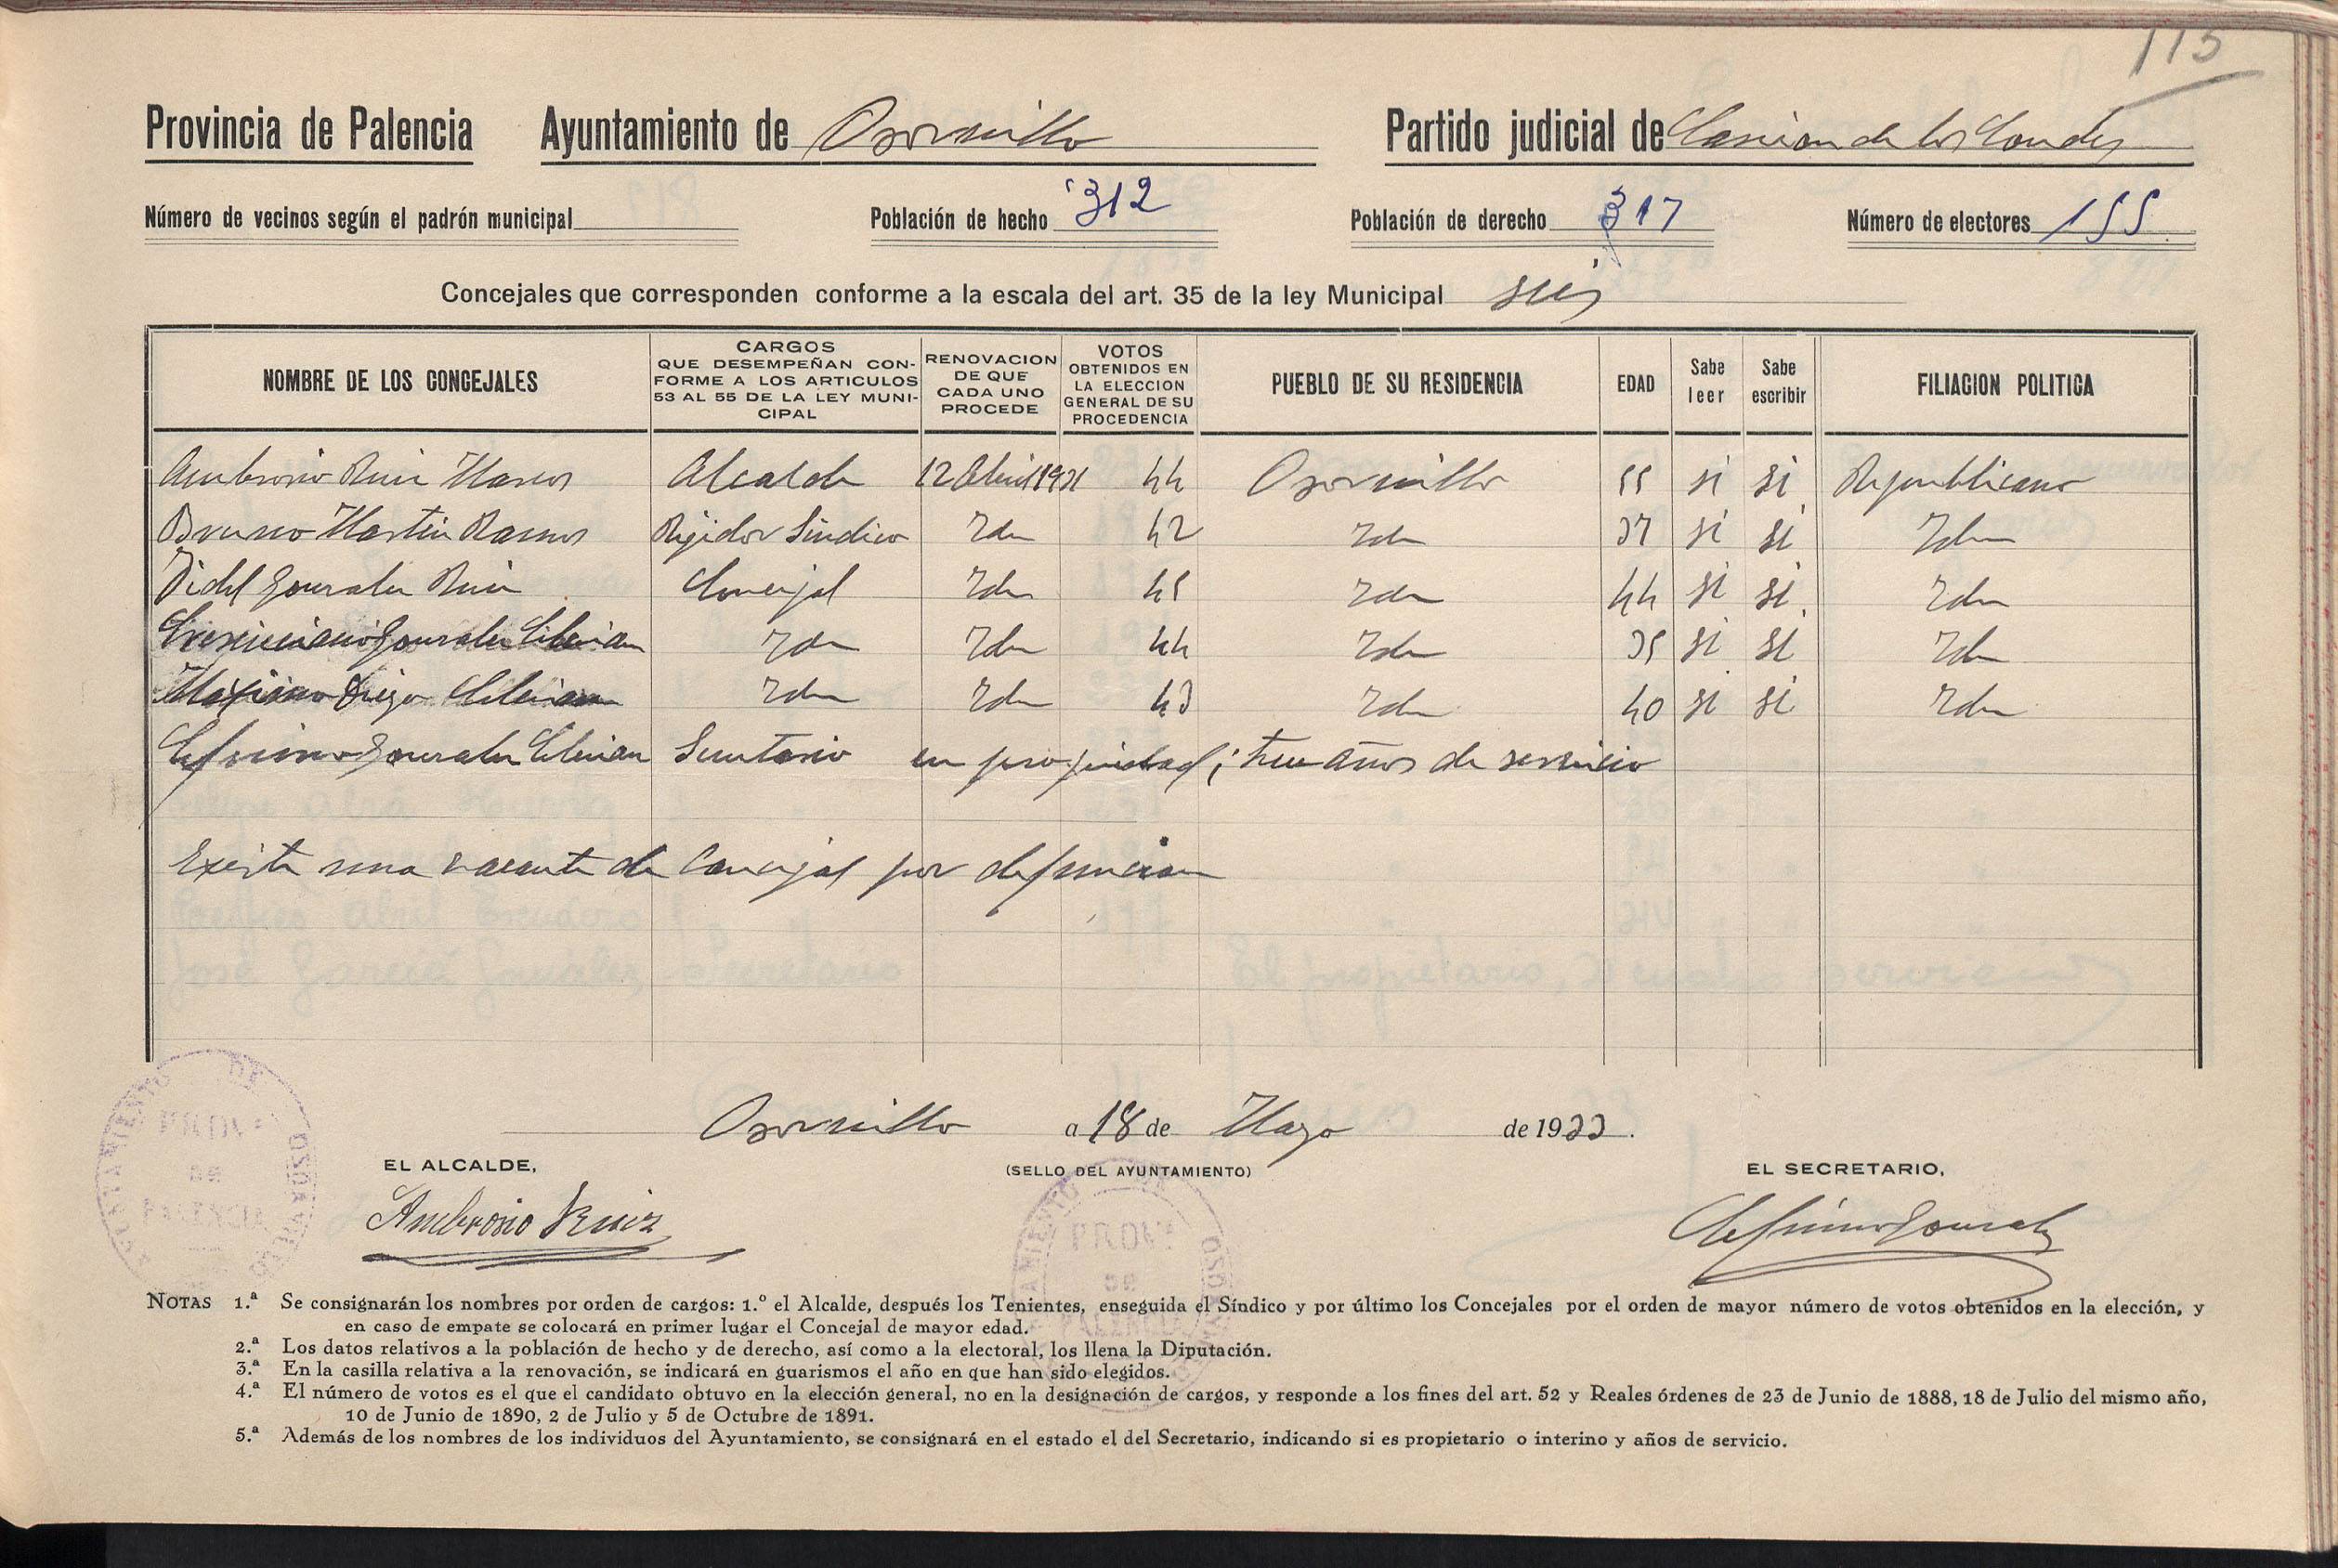 115
Provincia de Palencia Ayuntamiento de Osornillo Partido judicial de Carrion de los Condes
Número de vecinos según el padrón municipal Población de hecho 312 Población de derecho 317 Número de electores 155
Concejales que corresponden conforme a la escala del art. 35 de la ley Municipal seis
NOMBRE DE LOS CONCEJALES CARGOS QUE DESEMPEÑAN CONFORME A LOS ARTICULOS 53 AL 55 DE LA LEY MUNICIPAL RENOVACION DE QUE CADA UNO PROCEDE VOTOS OBTENIDOS EN LA ELECCION GENERAL DE SU PROCEDENCIA PUEBLO DE SU RESIDENCIA EDAD Sabe leer Sabe escribir FILIACION POLITICA
Ambrosio Ruiz Marcos Alcalde 12 Abril 1931 44 Osornillo 55 si si Republicano
Bruno Martin Ramos Regidor Sindico Idm 42 Idm 37 si si Idm
Fidel Gonzalez Ruiz Concejal Idm 45 Idm 44 si si Idm
Crescenciano Gonzalez Cebrian Idm Idm 44 Idm 35 si si Idm
Maximo Diego Cebrian Idm Idm 43 Idm 40 si si Idm
Ceferino Gonzalez Cebrian Secretario en propiedad; trece años de servicio
Existe una vacante de Concejal por defuncion
Osornillo a 18 de Mayo de 1933.
EL ALCALDE, (SELLO DEL AYUNTAMIENTO) EL SECRETARIO,
Ambrosio Ruiz Ceferino Gonzalez
AYUNTAMIENTO DE OSORNILLO PROVª DE PALENCIA
NOTAS 1.ª Se consignarán los nombres por orden de cargos: 1.º el Alcalde, después los Tenientes, enseguida el Síndico y por último los Concejales por el orden de mayor número de votos obtenidos en la elección, y
en caso de empate se colocará en primer lugar el Concejal de mayor edad.
2.ª Los datos relativos a la población de hecho y de derecho, así como a la electoral, los llena la Diputación.
3.ª En la casilla relativa a la renovación, se indicará en guarismos el año en que han sido elegidos.
4.ª El número de votos es el que el candidato obtuvo en la elección general, no en la designación de cargos, y responde a los fines del art. 52 y Reales órdenes de 23 de Junio de 1888, 18 de Julio del mismo año,
10 de Junio de 1890, 2 de Julio y 5 de Octubre de 1891.
5.ª Además de los nombres de los individuos del Ayuntamiento, se consignará en el estado el del Secretario, indicando si es propietario o interino y años de servicio.